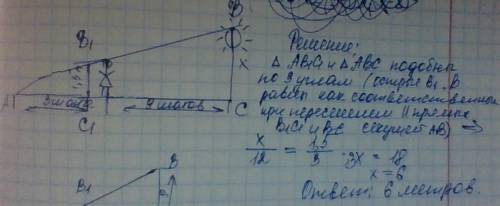 B₁
B
1,5
x
A
3 шага
9 шагов
C
C₁
Решение:
△ AB₁C₁ и △ABC подобны
по 3 углам (острые B₁, B
равны как соответственные
при пересечении II прямых
B₁C₁ и BC секущей AB) ⇒
x/12 = 1,5/3 · 3x = 18
x = 6
Ответ: 6 метров.
B₁
B